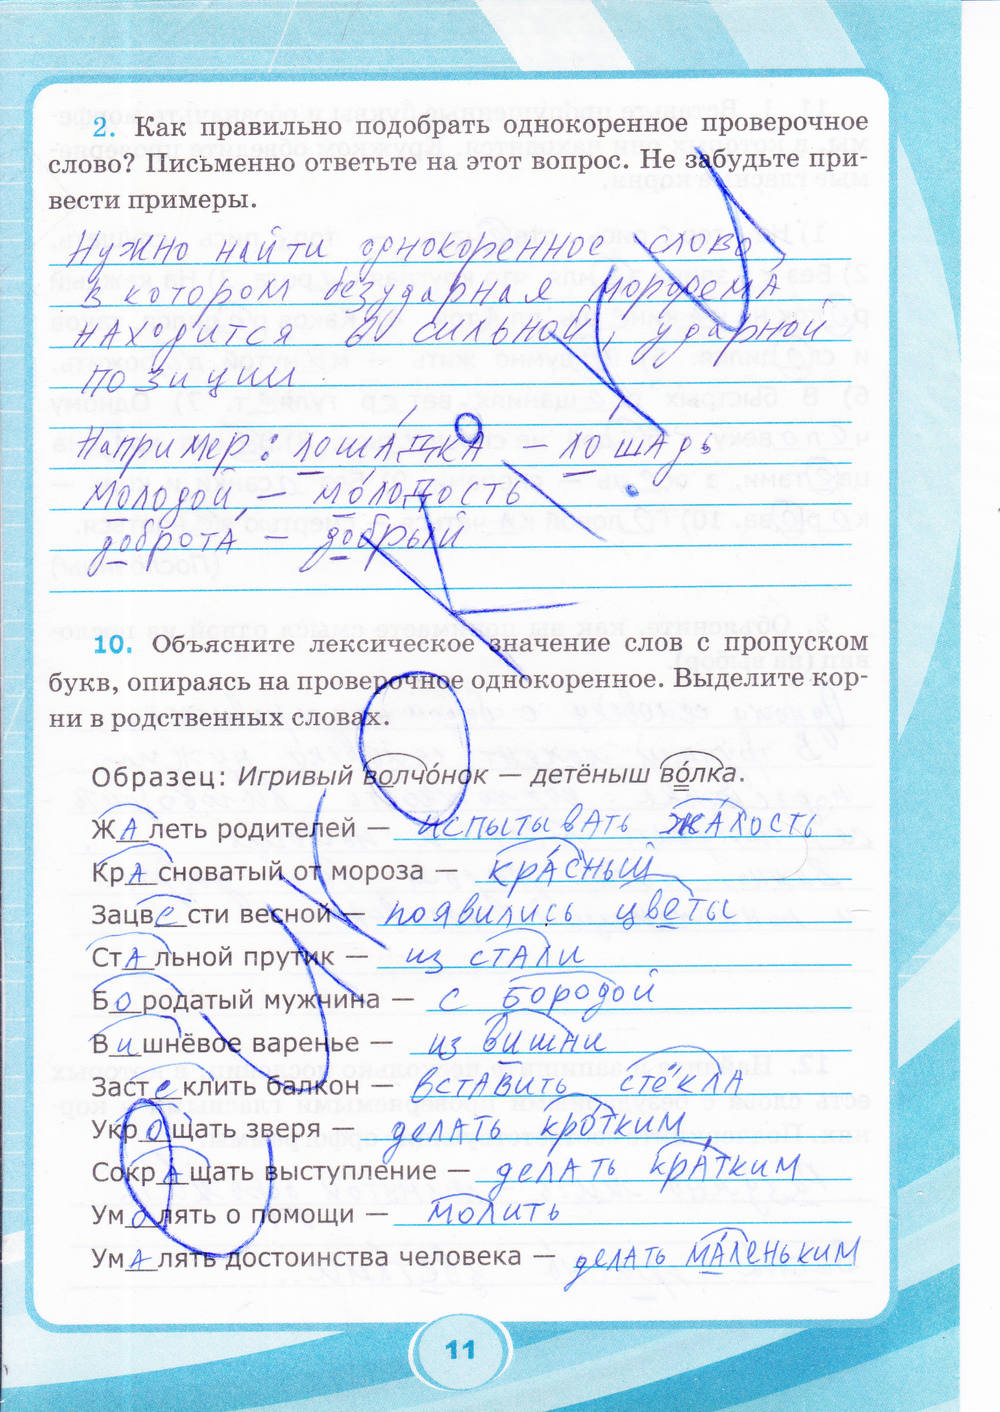 2. Как правильно подобрать однокоренное проверочное
слово? Письменно ответьте на этот вопрос. Не забудьте при-
вести примеры.
Нужно найти однокоренное слово,
в котором безударная морфема
находится в сильной, ударной
позиции.
Например: лошадка – лошадь
молодой – молодость
доброта – добрый
10. Объясните лексическое значение слов с пропуском
букв, опираясь на проверочное однокоренное. Выделите кор-
ни в родственных словах.
Образец: Игривый волчонок — детёныш волка.
Жалеть родителей — испытывать жалость
Красноватый от мороза — красный
Зацвести весной — появились цветы
Стальной прутик — из стали
Бородатый мужчина — с бородой
Вишнёвое варенье — из вишни
Застеклить балкон — вставить стёкла
Укрощать зверя — делать кротким
Сокращать выступление — делать кратким
Умолять о помощи — молить
Умалять достоинства человека — делать маленьким
11